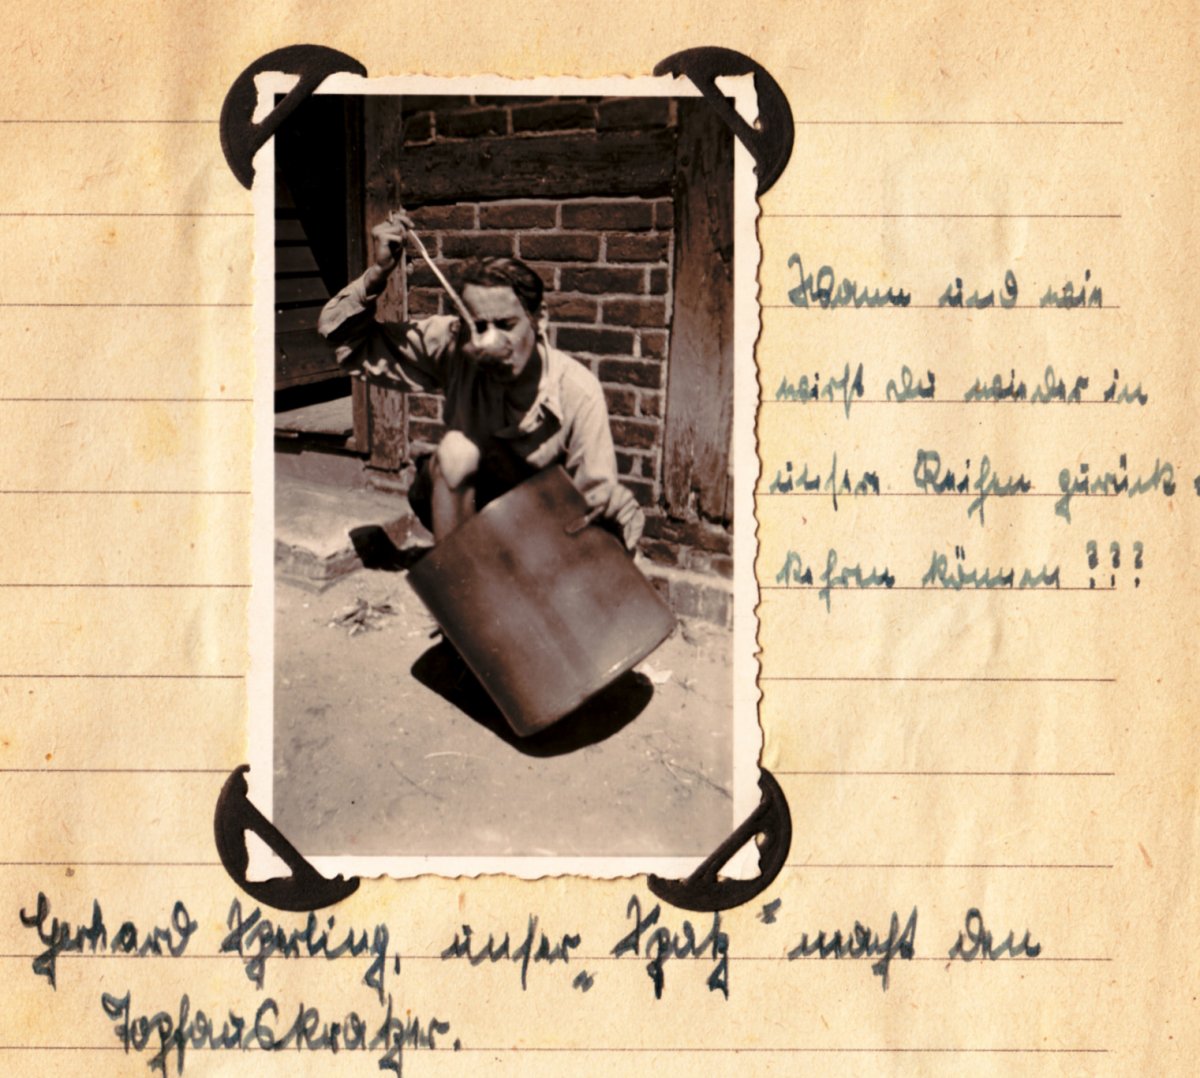 Wann und wie
wirst du wieder in
unsere Reihen zurück-
kehren können???
Gerhard Sperling, unser „Spatz“ macht den
Topfauskratzer.